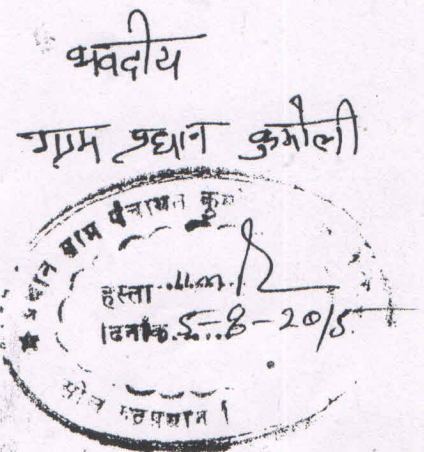 भवदीय
ग्राम प्रधान कुमोली
प्रधान ग्राम पंचायत कुमो
हस्ता
दिनांक 5-8-2015